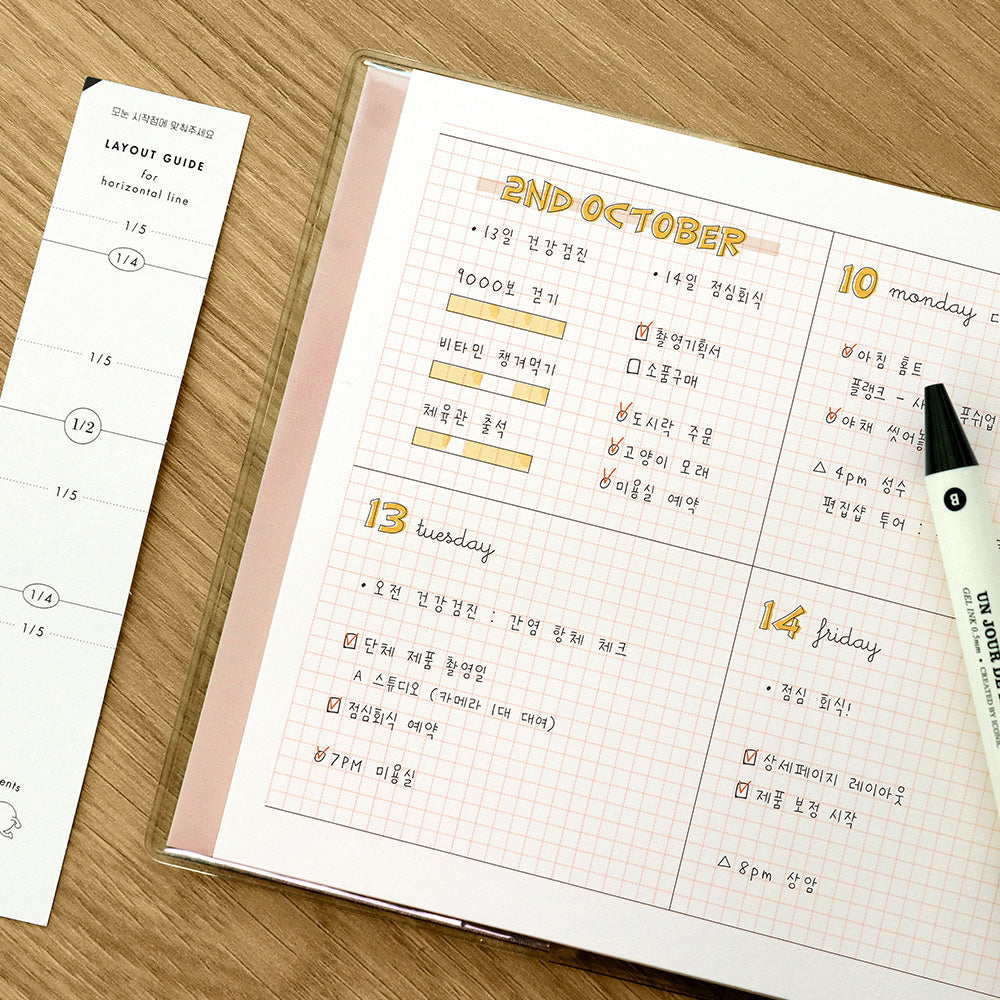 모눈 시작점에 맞춰주세요
LAYOUT GUIDE
for
horizontal line
1/5
1/4
1/5
1/2
1/5
1/4
1/5
2ND OCTOBER
• 13일 건강검진
• 14일 점심회식
9000보 걷기
비타민 챙겨먹기
체육관 출석
촬영기획서
소품구매
도시락 주문
고양이 모래
미용실 예약
10 monday
아침 홈트
플랭크 -
푸쉬업
야채
△ 4pm 성수
편집샵 투어 :
13 tuesday
• 오전 건강검진 : 간염 항체 체크
단체 제품 촬영일
A 스튜디오 (카메라 1대 대여)
점심회식 예약
7PM 미용실
14 friday
• 점심 회식!
상세페이지 레이아웃
제품 보정 시작
△ 8pm 상암
B
UN JOUR DE
GEL INK 0.5mm • CREATED BY ICONIC